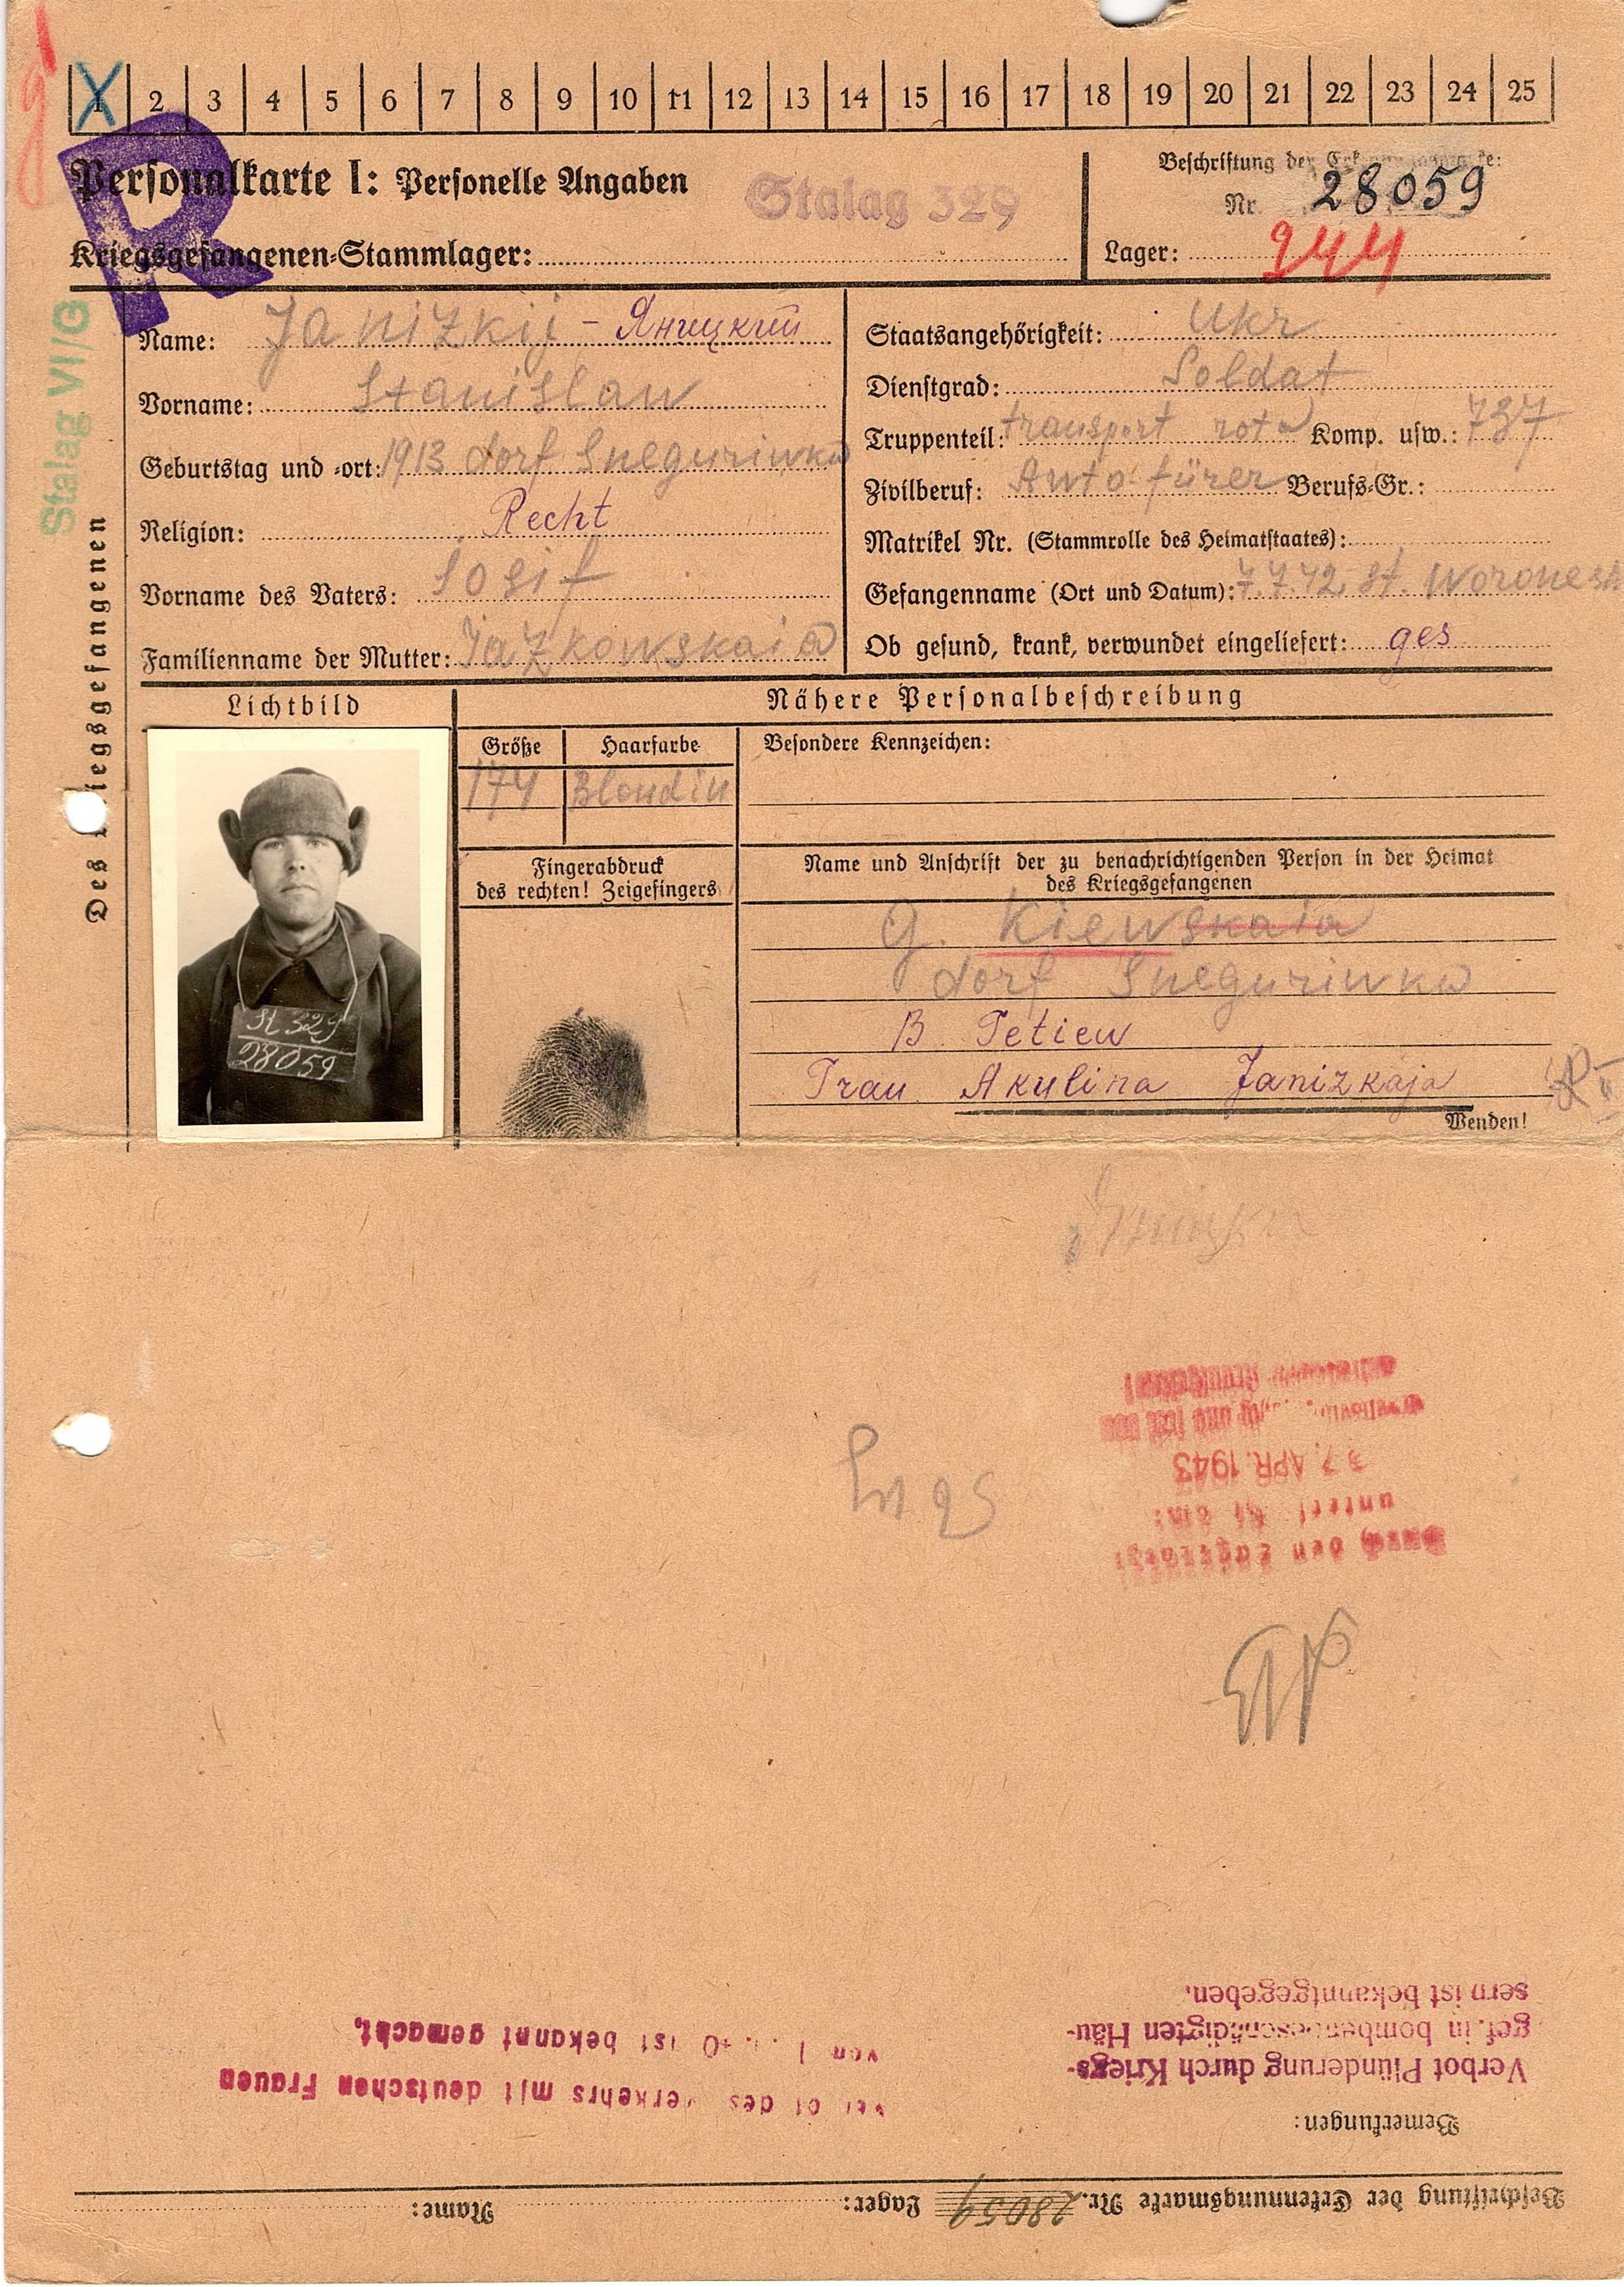 1 2 3 4 5 6 7 8 9 10 11 12 13 14 15 16 17 18 19 20 21 22 23 24 25
R
Personalkarte I: Personelle Angaben
Stalag 329
Kriegsgefangenen-Stammlager:
Beschriftung der
Nr. 28059
Lager: 244
Stalag VI/G
Des Kriegsgefangenen
Name: Janizkij - Яницкий
Vorname: Stanislaw
Geburtstag und -ort: 1913 dorf Sneguriwka
Religion: Recht
Vorname des Vaters: Iosif
Familienname der Mutter: Jazkowskaia
Staatsangehörigkeit: Ukr
Dienstgrad: Soldat
Truppenteil: transport rota Komp. usw.: 737
Zivilberuf: Auto fürer Berufs-Gr.:
Matrikel Nr. (Stammrolle des Heimatstaates):
Gefangenname (Ort und Datum): 7.7.42 st. Woronesh
Ob gesund, krank, verwundet eingeliefert: ges
Lichtbild
Nähere Personalbeschreibung
Größe
Haarfarbe
Besondere Kennzeichen:
174
Blondin
Fingerabdruck
des rechten! Zeigefingers
Name und Anschrift der zu benachrichtigenden Person in der Heimat
des Kriegsgefangenen
G. Kiewskaia
dorf Sneguriwka
B. Tetiew
Frau Akulina Janizkaja
Wenden!
St 329
28059
Durch den
unter am:
7. APR. 1943
und
Verbot Plünderung durch Kriegs-
gef. in bombenbeschädigten Häu-
sern ist bekanntgegeben.
des Verkehrs mit deutschen Frauen
ist bekannt gemacht.
Bemerkungen:
Beschriftung der Erkennungsmarke Nr. 28059 Lager: Name: